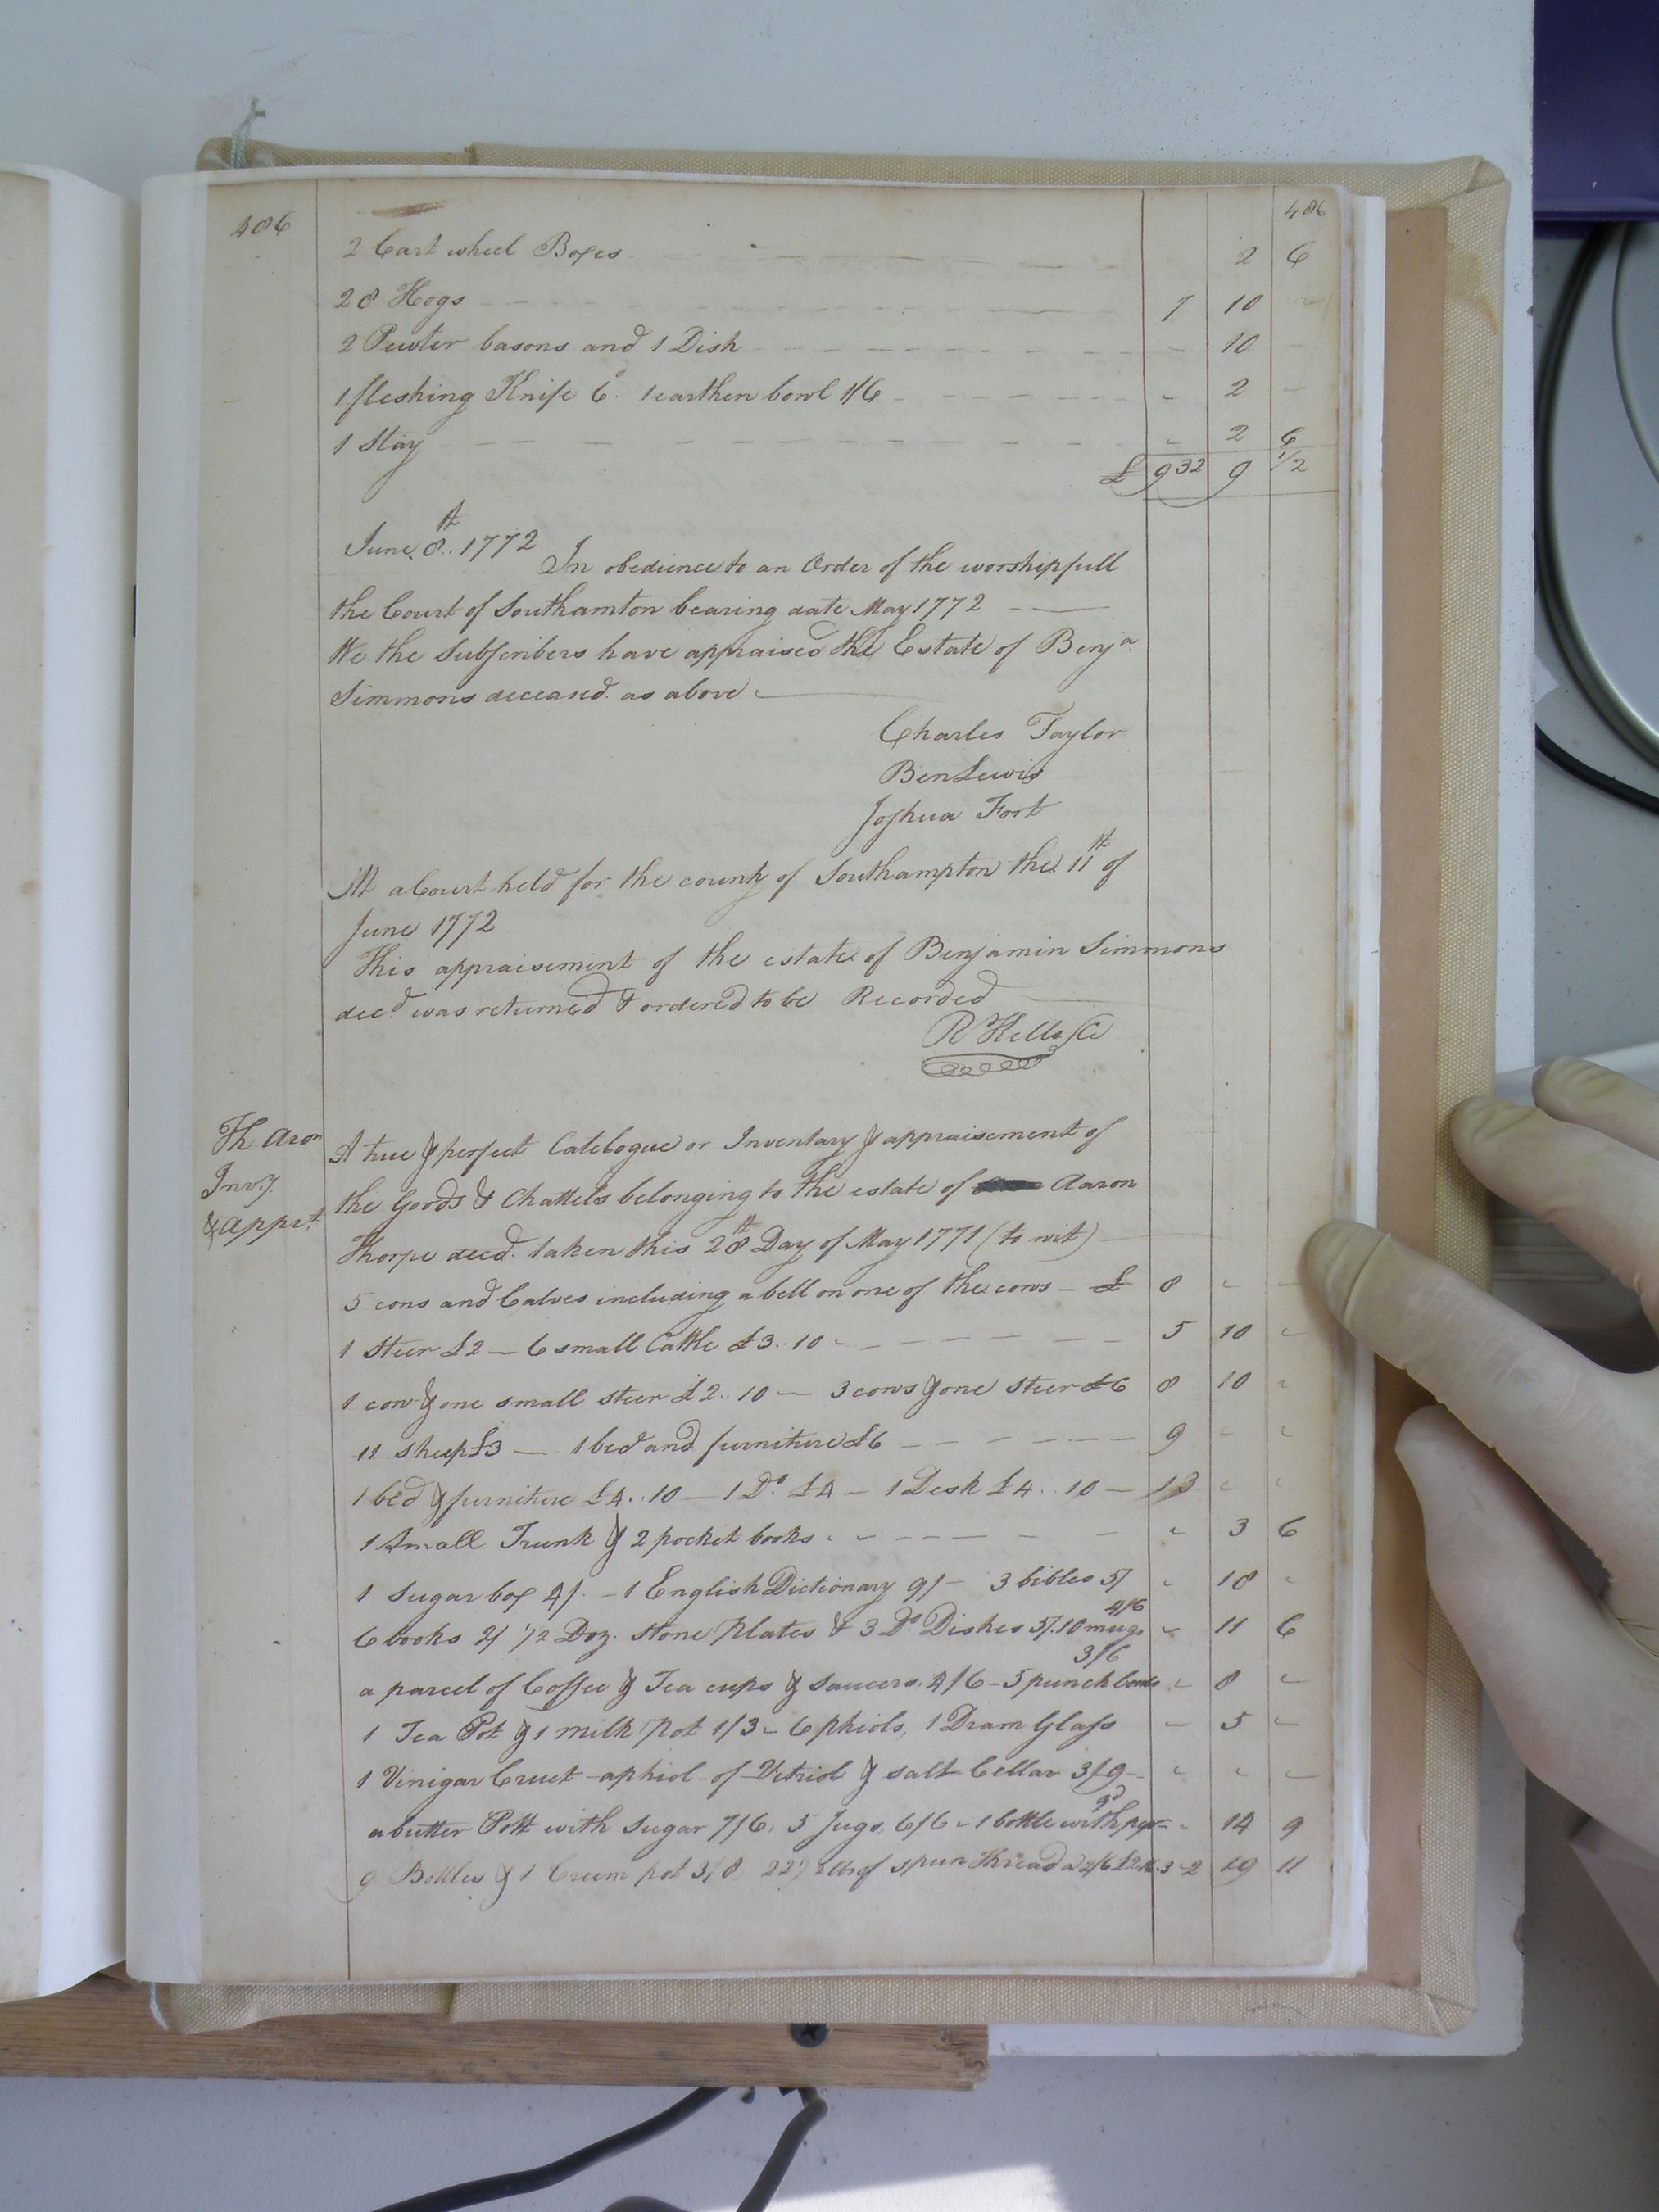 486 486
2 Cart wheel Boxes - 2 6
28 Hogs 7 10 -
2 Pewter basons and 1 Dish - 10 -
1 fleshing Knife 6d. 1 earthen bowl 1/6 - 2 -
1 Stay - 2 6
£ 932 9 1/2
June 8th 1772 In obedience to an Order of the worshipfull
the Court of Southamton bearing date May 1772
We the Subscribers have appraised the Estate of Benja
Simmons deceased. as above
Charles Taylor
Ben Lewis
Joshua Fort
At a Court held for the county of Southampton the 11th of
June 1772
This appraisement of the estate of Benjamin Simmons
decd was returned & ordered to be Recorded
R Kello CC
Th. Aron
Invy.
& Apprt.
A true & perfect Catelogue or Inventary & appraisement of
the Goods & Chattels belonging to the estate of Aaron
Thorpe decd. taken this 28th Day of May 1771 (to wit)
5 cows and Calves including a bell on one of the cows - £ 8 - -
1 Steer £2 - 6 small Cattle £3..10 - 5 10 -
1 cow & one small steer £2..10 - 3 cows & one steer £6 8 10 -
11 sheep £3 - 1 bed and furniture £6 9 - -
1 bed & furniture £4..10 - 1 Do. £4 - 1 Desk £4..10 - 13 - -
1 Small Trunk & 2 pocket books - 3 6
1 Sugar box 4/. - 1 English Dictionary 9/ - 3 bibles 5/ - 18 -
6 books 2/ 1/2 Doz. stone Plates & 3 Do. Dishes 5/. 10 mugs 4/6 - 11 6
a parcel of Coffee & Tea cups & saucers, 4/6 - 5 punch bowls 3/6 - 8 -
1 Tea Pot & 1 milk Pot 1/3 - 6 phiols, 1 Dram Glass - 5 -
1 Vinigar Cruet - a phiol of Vitriol & salt Cellar 3/9 - - -
a butter Pott with Sugar 7/6, 5 Jugs, 6/6 - 1 bottle with 9d - 14 9
9 Bottles & 1 Creem pot 3/8 of spun thread a 2/6 2 19 11